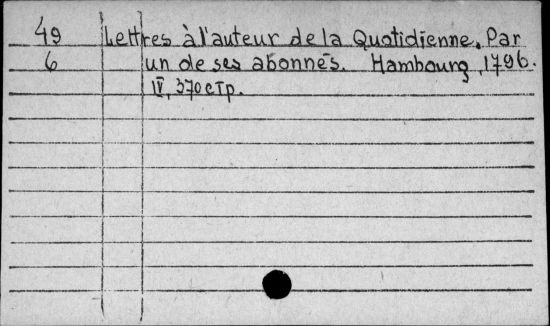 49 Lettres à l'auteur de la Quotidienne. Par
6 un de ses abonnés. Hambourg, 1796.
IV, 370 стр.